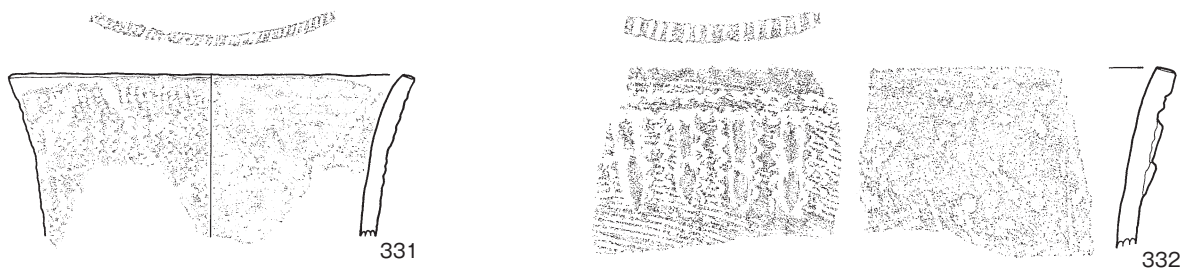 331
332